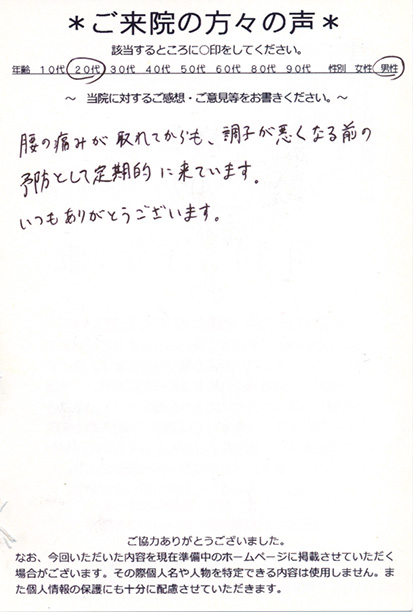 ＊ご来院の方々の声＊
該当するところに○印をしてください。
年齢 10代 20代 30代 40代 50代 60代 70代 80代 90代 性別 女性 男性
～ 当院に対するご感想・ご意見等をお書きください。～
腰の痛みが取れてからも、調子が悪くなる前の
予防として定期的に来ています。
いつもありがとうございます。
ご協力ありがとうございました。
なお、今回いただいた内容を現在準備中のホームページに掲載させていただく
場合がございます。その際個人名や人物を特定できる内容は使用しません。ま
た個人情報の保護にも十分に配慮させていただきます。